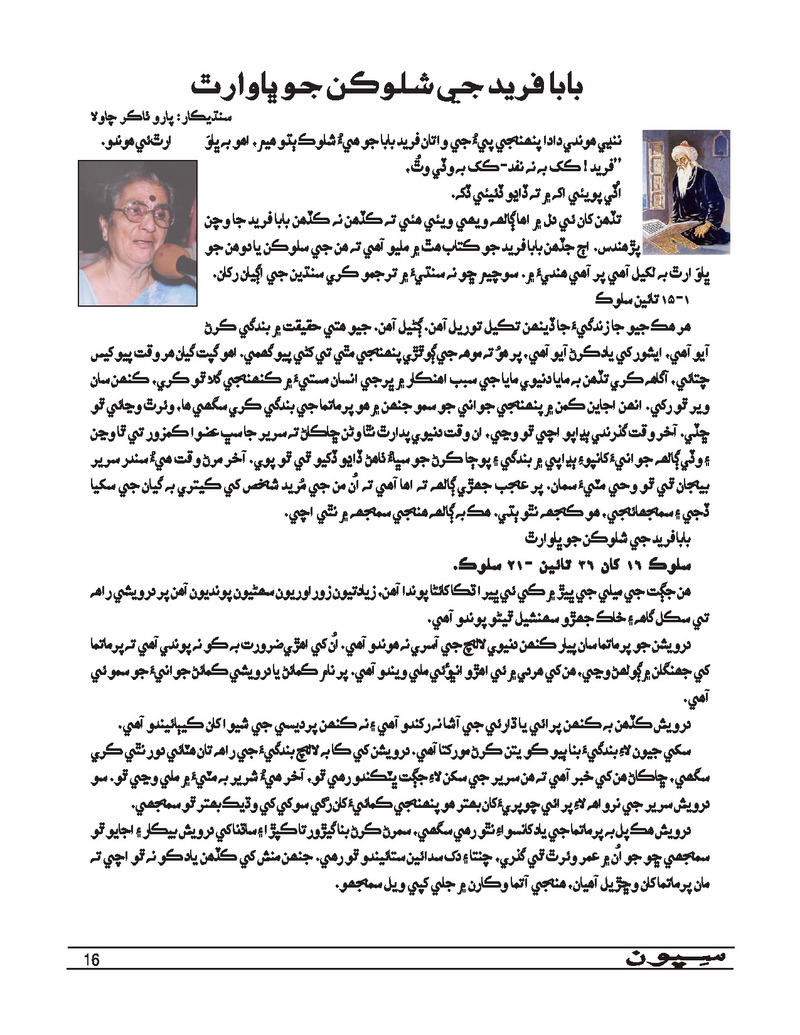 بابا فريد جي شلوڪن جو ڀاوارٿ
سنڌيڪار: پارو ٺاڪر چاولا
ننڍي هوندي دادا پنهنجي پيءُ جي واتان فريد بابا جو هيءُ شلوڪ ٻڌو هيم، اهو به ڀاوَ ارٿ ئي هوندو.
”فريد! ڪک به نه نفد-ڪک به وڏي وٿُ،
اڻي پويئي اکہ ۾ ته ڏاڍو ڏئيئي ڏکہ.
تڏهن کان ئي دل ۾ اها ڳالهه ويهي ويئي هئي ته ڪڏهن نه ڪڏهن بابا فريد جا وچن
پڙهندس. اڄ جڏهن بابا فريد جو ڪتاب هٿ ۾ مليو آهي ته هن جي سلوڪن يا دوهن جو
ڀاوَ ارٿ به لکيل آهي پر آهي هنديءَ ۾. سوچيم ڇو نه سنڌيءَ ۾ ترجمو ڪري سنڌين جي اڳيان رکان.
۱-۱۵ تائين سلوڪ
هر هڪ جيو جا زندگيءَ جا ڏينهن تڪيل توريل آهن، ڳڻيل آهن. جيو هتي حقيقت ۾ بندگي ڪرڻ
آيو آهي، ايشور کي ياد ڪرڻ آيو آهي، پر هوُ ته موهه جي ڳوٿڙي پنهنجي مٿي تي کڻي پيو گهمي. اهو گپت گيان هر وقت پيو کيس
چتائي، آگاهه ڪري تڏهن به مايا دنيوي مايا جي سبب اهنڪار ۾ ڀرجي انسان مستيءَ ۾ ڪنهنجي گلا ٿو ڪري، ڪنهن سان
وير ٿو رکي. انهن اجاين ڪمن ۾ پنهنجي جواني جو سمو جنهن ۾ هو پرماتما جي بندگي ڪري سگهي ها، ويئرٿ وڃائي ٿو
ڇڏي. آخر وقت گذرندي ٻڍاپو اچي ٿو وڃي، ان وقت دنيوي پدارٿ نٿا وڻن ڇاڪاڻ ته سرير جا سڀ عضوا ڪمزور ٿي ٿا وڃن
۽ وڏي ڳالهه جوانيءَ کانپوءِ ٻڍاپي ۾ بندگي ۽ پوڄا ڪرڻ جو سڀاءُ ٺاهڻ ڏاڍو ڏکيو ٿي ٿو پوي. آخر مرڻ وقت هيءُ سندر سرير
بيجان ٿي ٿو وڃي مٽيءَ سمان. پر عجب جهڙي ڳالهه ته اها آهي ته اُن من جي مُريد شخص کي ڪيتري به گيان جي سکيا
ڏجي ۽ سمجهائجي، هو ڪجهه نٿو ٻڌي. هڪ به ڳالهه هنجي سمجهه ۾ نٿي اچي.
بابا فريد جي شلوڪن جو ڀاوارٿ
سلوڪ ۱۶ کان ۳۶ تائين -۲۱ سلوڪ.
هن جڳت جي ميلي جي ڀيڙ ۾ ڪي ئي پير اٽڪا کائڻا پوندا آهن، زيادتيون زوراوريون سهڻيون پونديون آهن پر درويشي راهه
تي سڪل گاهه ۽ خاڪ جهڙو سهنشيل ٿيڻو پوندو آهي.
درويشن جو پرماتما سان پيار ڪنهن دنيوي لالچ جي آسري نه هوندو آهي. اُن کي اهڙي ضرورت به ڪو نه پوندي آهي ته پرماتما
کي جهنگلن ۾ ڳولهڻ وڃي، هن کي هردي ۾ ئي اهڙو انڀوُئي ملي ويندو آهي. پر نام ڪمائڻ يا درويشي ڪمائڻ جوانيءَ جو سمو ئي
آهي.
درويش ڪڏهن به ڪنهن پرائي يا ڌارئي جي آشا نه رکندو آهي ۽ نه ڪنهن پرديسي جي شيوا کان ڪيٻائيندو آهي.
سکي جيون لاءِ بندگيءَ بنا ٻيو ڪو يتن ڪرڻ مورکتا آهي. درويشن کي ڪا به لالچ بندگيءَ جي راهه تان هٽائي دور نٿي ڪري
سگهي، ڇاڪاڻ هن کي خبر آهي ته هن سرير جي سکن لاءِ جڳت ڀٽڪندو رهي ٿو، آخر هيءُ شرير به مٽيءَ ۾ ملي وڃي ٿو. سو
درويش سرير جي نرواهه لاءِ پرائي چوپڙيءَ کان بهتر هو پنهنجي ڪمائيءَ کان رُگي سوکي کي وڌيڪ بهتر ٿو سمجهي.
درويش هڪ پل به پرماتما جي ياد کانسواءِ نٿو رهي سگهي، سمرڻ ڪرڻ بنا گيڙو رتا ڪپڙا ۽ ساڌنا کي درويش بيڪار ۽ اجايو ٿو
سمجهي ڇو جو اُن ۾ عمر ويئرٿ ٿي گذري، چنتا ۽ دک سدائين ستائيندو ٿو رهي. جنهن منش کي ڪڏهن ياد ڪو نه ٿو اچي ته
مان پرماتما کان وڇڙيل آهيان، هنجي آتما وڪارن ۾ جلي کپي ويل سمجهو.
16
سِپون